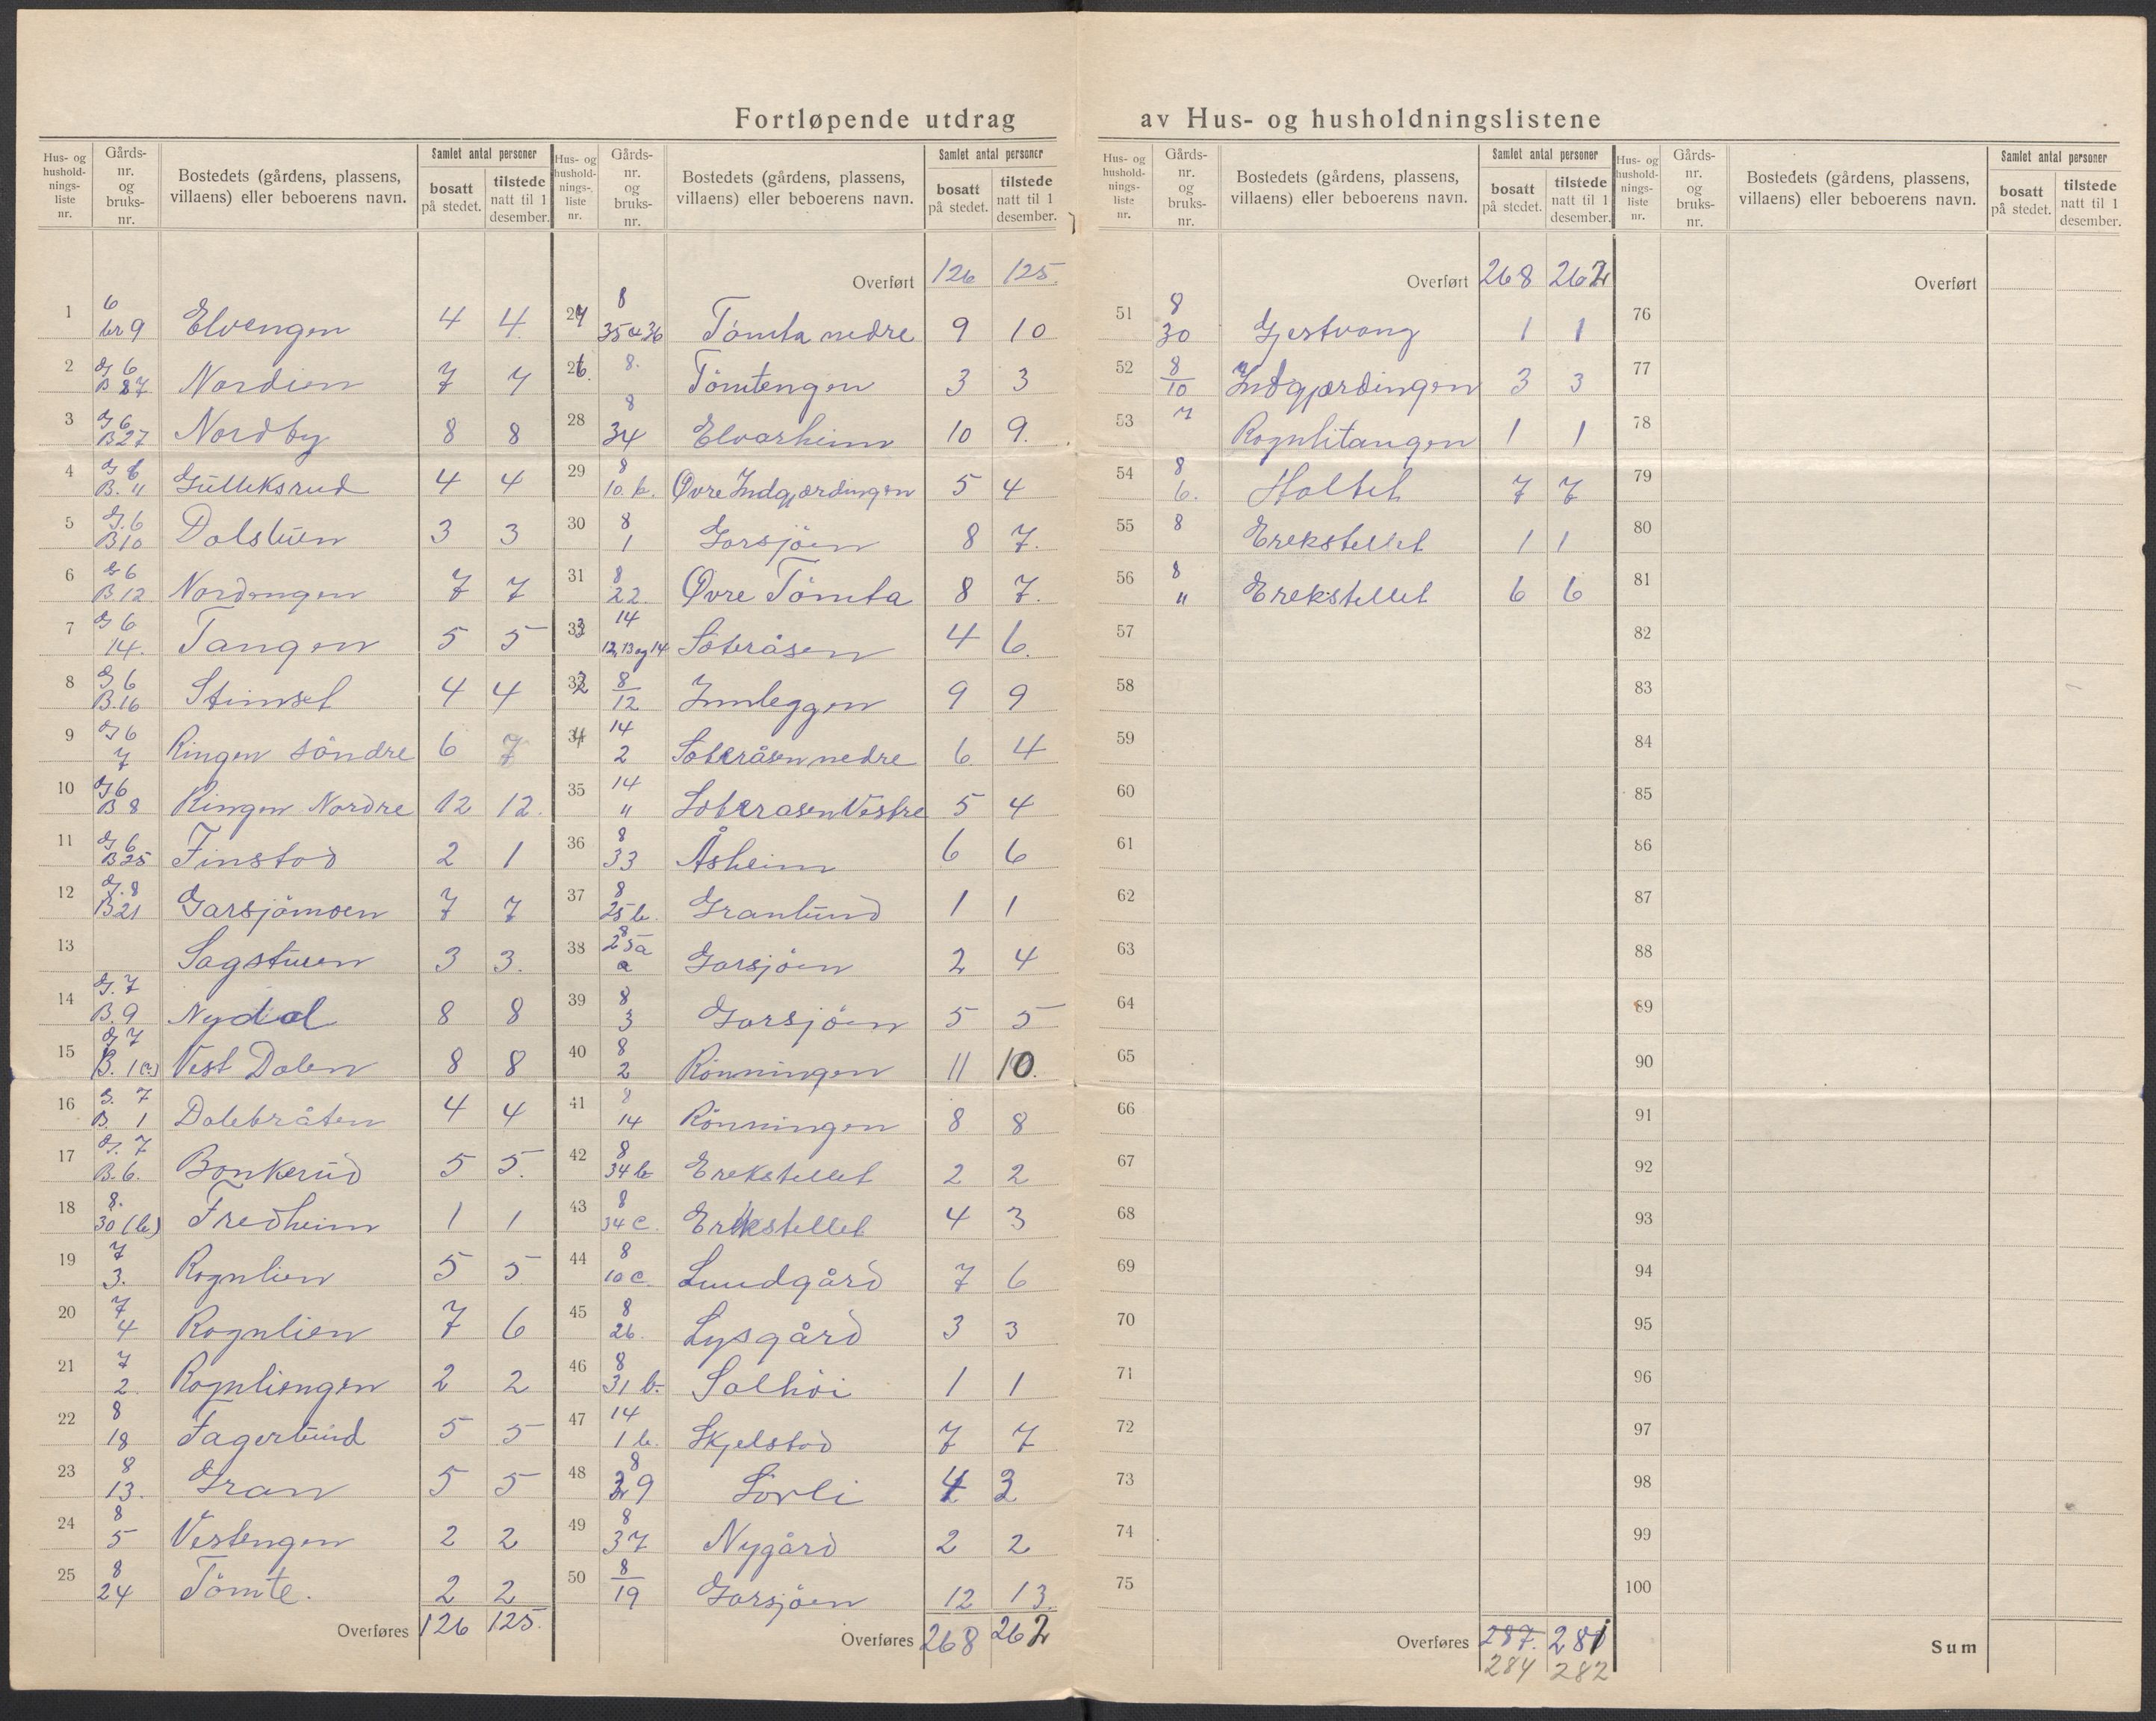 Fortløpende utdrag av Hus- og husholdningslistene
Hus- og husholdnings-liste nr. | Gårds-nr. og bruks-nr. | Bostedets (gårdens, plassens, villaens) eller beboerens navn. | Samlet antal personer bosatt på stedet. | tilstede natt til 1 desember.
1 6 br 9 Elvengen 4 4
2 G 6 B 87 Nordien 7 7
3 G 6 B 27 Nordby 8 8
4 G 6 B. 11 Gulleksrud 4 4
5 G. 6 B 10 Dalstuen 3 3
6 G 6 B 12 Nordengen 7 7
7 G 6 14. Tangen 5 5
8 G 6 B. 16 Stimset 4 4
9 G 6 7 Ringen söndre 6 7
10 G 6 B 8 Ringen Nordre 12 12.
11 G 6 B 25 Finstad 2 1
12 G. 8 B 21 Garsjömoen 7 7
13 Sagstuen 3 3.
14 G. 7 B. 9 Nydal 8 8
15 G 7 B. 1 (c.) Vest Dalen 8 8
16 G. 7 B. 1 Dalebråten 4 4
17 G. 7 B. 6. Bonkerud 5 5.
18 8. 30 (b.) Fredheim 1 1
19 7 3. Rognlien 5 5
20 7 4 Rognlien 7 6
21 7 2. Rognliengen 2 2
22 8 18 Fagerlund 5 5
23 8 13. Gran 5 5
24 8 5 Vestengen 2 2
25 8 24 Tömte. 2 2
Overføres 126 125.
Hus- og husholdnings-liste nr. | Gårds-nr. og bruks-nr. | Bostedets (gårdens, plassens, villaens) eller beboerens navn. | Samlet antal personer bosatt på stedet. | tilstede natt til 1 desember.
Overført 126 125.
27 8 35 & 36 Tömta nedre 9 10
26. 8. Tömtengen 3 3
28 8 34 Elvarheim 10 9.
29 8 10. b. Øvre Indgjærdingen 5 4
30 8 1 Garsjöen 8 7.
31 8 22. Øvre Tömta 8 7.
33 14 12, 13 og 14 Soteråsen 4 6.
32 8 12 Innleggen 9 9
34 14 2 Soteråsen nedre 6 4
35 14 " Soteråsen Vestre 5 4
36 8 33 Åsheim 6 6
37 8 25 b. Granlund 1 1
38 8 25 a a Garsjöen 2 4
39 8 3 Garsjöen 5 5
40 8 2 Rönningen 11 10.
41 8 14 Rönningen 8 8
42 8 34 b Erekstellet 2 2
43 8 34 c. Erikstellet 4 3
44 8 10 c. Lundgård 7 6
45 8 26. Lysgård 3 3
46 8 31 b. Solhöi 1 1
47 14 1 b. Skjelstad 7 7
48 8 29 Sörli 4 3
49 8 37 Nygård 2 2
50 8 19 Garsjöen 12 13.
Overføres 268 262
Hus- og husholdnings-liste nr. | Gårds-nr. og bruks-nr. | Bostedets (gårdens, plassens, villaens) eller beboerens navn. | Samlet antal personer bosatt på stedet. | tilstede natt til 1 desember.
Overført 268 262
51 8 30 Gjestvang 1 1
52 8 10 Indgjærdingen 3 3
53 7 Rognlitangen 1 1
54 8 6. Holtet 7 7
55 8 Erekstellet 1 1
56 8 " Erekstellet 6 6
57
58
59
60
61
62
63
64
65
66
67
68
69
70
71
72
73
74
75
Overføres 287. 281
284 282
Hus- og husholdnings-liste nr. | Gårds-nr. og bruks-nr. | Bostedets (gårdens, plassens, villaens) eller beboerens navn. | Samlet antal personer bosatt på stedet. | tilstede natt til 1 desember.
Overført
76
77
78
79
80
81
82
83
84
85
86
87
88
89
90
91
92
93
94
95
96
97
98
99
100
Sum